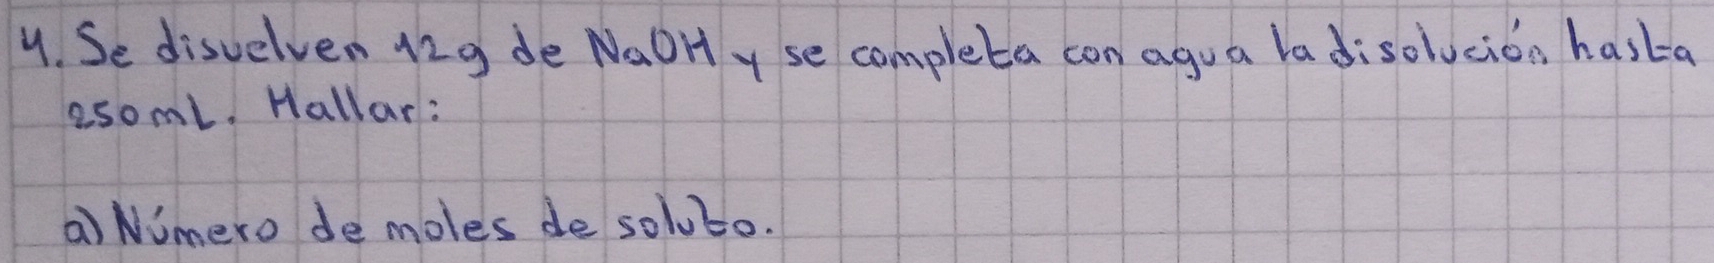 4. Se disuelven 12g de NaOH y se completa con agua la disolución hasta
250mL. Hallar:
a) Número de moles de soluto.